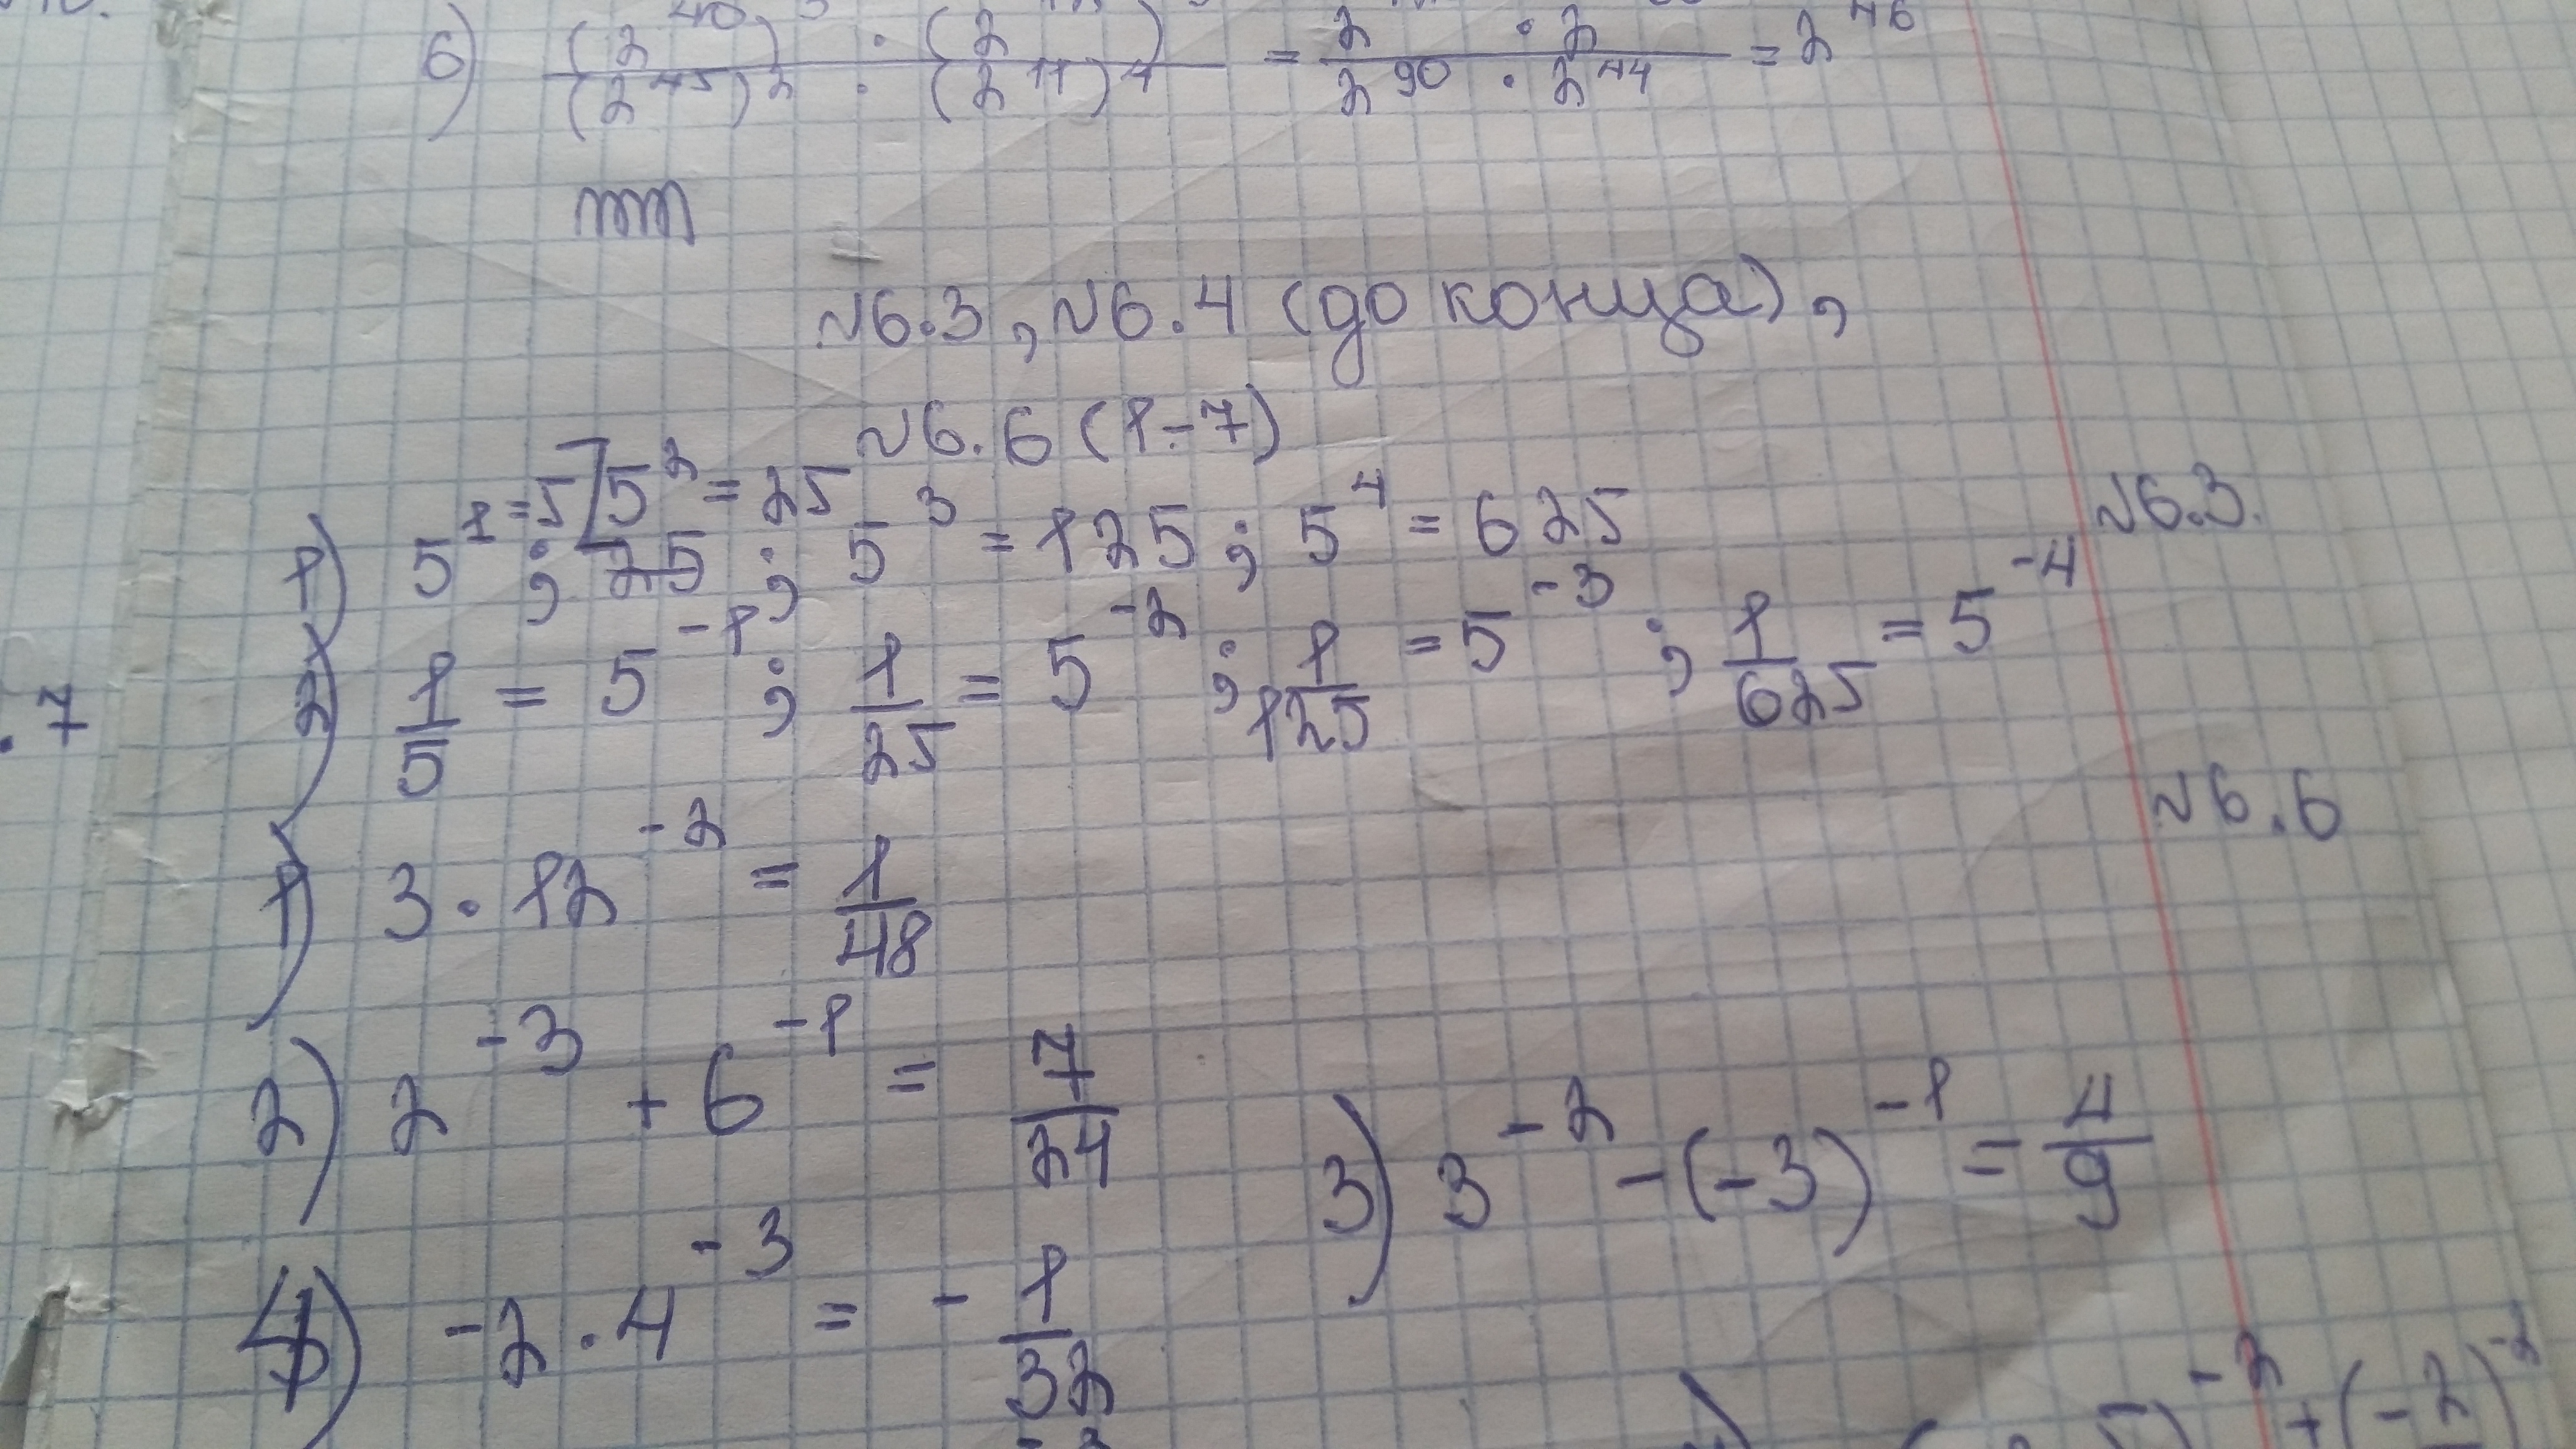 6) (2⁴⁰)³ · (2 ) / (2⁴⁵)² · (2¹¹)⁴ = 2 · 2 / 2⁹⁰ · 2⁴⁴ = 2⁴⁶
№6.3, №6.4 (до конца),
№6.6 (1-7)
№6.3.
1) 5¹=5; 5²=25; 5³ = 125; 5⁴ = 625
2) 1/5 = 5⁻¹; 1/25 = 5⁻²; 1/125 = 5⁻³; 1/625 = 5⁻⁴
.7
№6.6
1) 3·12⁻² = 1/48
2) 2⁻³ + 6⁻¹ = 7/24
3) 3⁻² - (-3)⁻¹ = 4/9
4) -2·4⁻³ = - 1/32
5)⁻² + (-2)⁻²